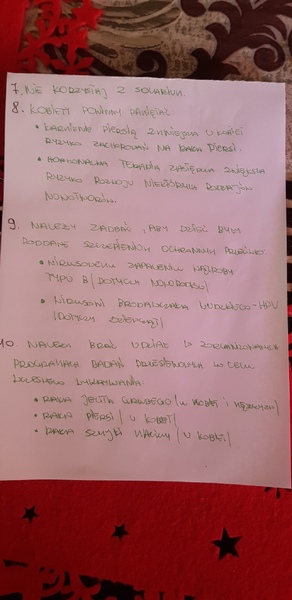 7. NIE KORZYSTAJ Z SOLARIUM.
8. KOBIETY POWINNY PAMIĘTAĆ
• KARMIENIE PIERSIĄ ZMNIEJSZA U KOBIET
RYZYKO ZACHOROWAŃ NA RAKA PIERSI.
• HORMONALNA TERAPIA ZASTĘPCZA ZWIĘKSZA
RYZYKO ROZWOJU NIEKTÓRYCH RODZAJÓW
NOWOTWORÓW.
9. NALEŻY ZADBAĆ, ABY DZIECI BYŁY
PODDANE SZCZEPIENIOM OCHRONNYM PRZECIWKO
• WIRUSOWEMU ZAPALENIU WĄTROBY
TYPU B/ DOTYCZY NOWORODKÓW/
• WIRUSOWI BRODAWCZAKA LUDZKIEGO-HPV
/DOTYCZY DZIEWCZĄT/
10. NALEŻY BRAĆ UDZIAŁ W ZORGANIZOWANYCH
PROGRAMACH BADAŃ PRZESIEWOWYCH W CELU
WCZESNEGO WYKRYWANIA:
• RAKA JELITA GRUBEGO /U KOBIET I MĘŻCZYZN/
• RAKA PIERSI / U KOBIET/
• RAKA SZYJKI MACICY / U KOBIET/